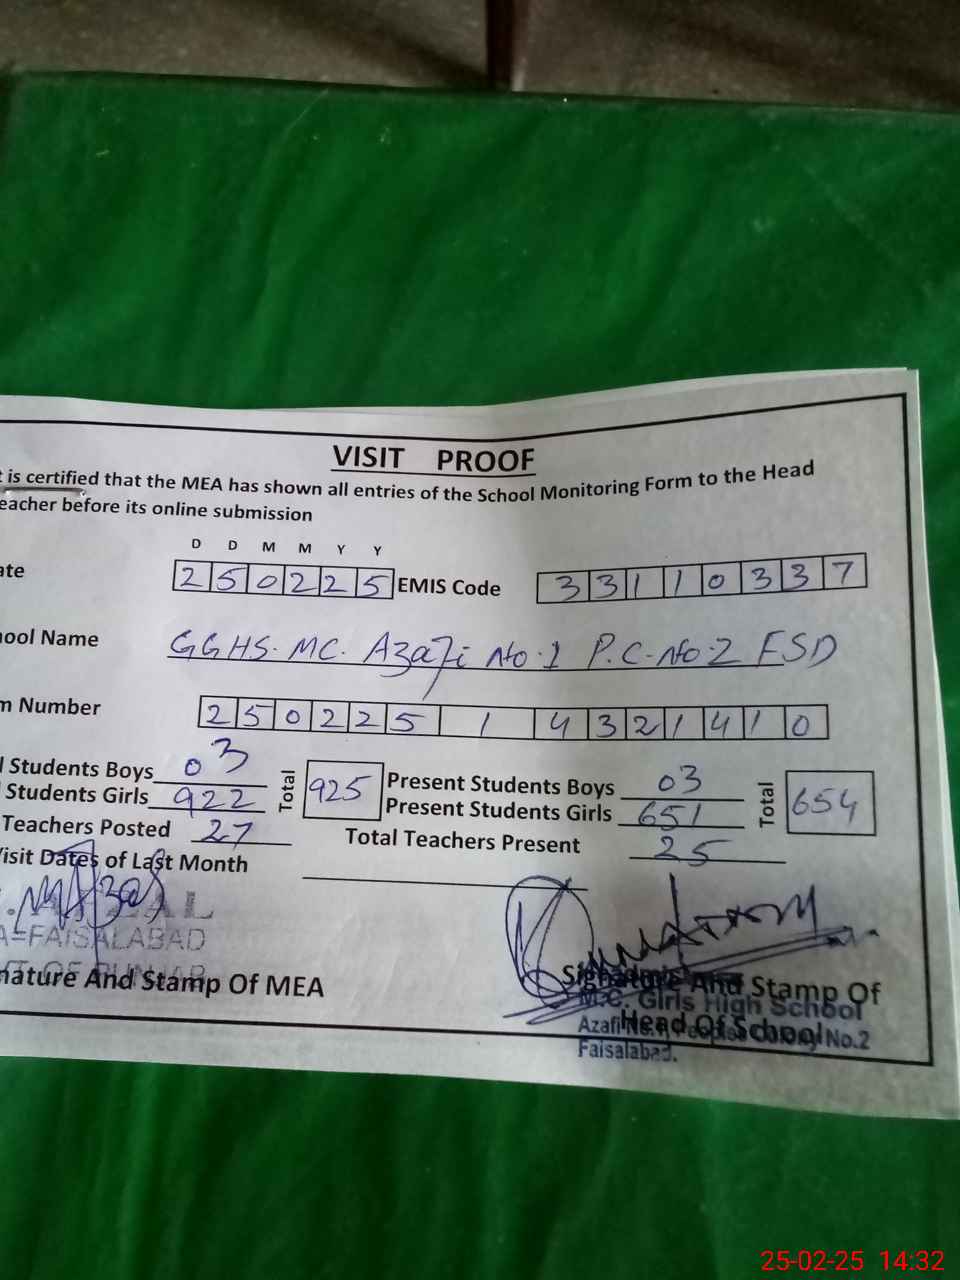 VISIT PROOF
t is certified that the MEA has shown all entries of the School Monitoring Form to the Head
eacher before its online submission
D D M M Y Y
ate 2 5 0 2 2 5 EMIS Code 3 3 1 1 0 3 3 7
hool Name GGHS. MC. Azafi No.1 P.C. No.2 FSD
m Number 2 5 0 2 2 5 1 4 3 2 1 4 1 0
l Students Boys 03 Total 925 Present Students Boys 03 Total 654
Students Girls 922 Present Students Girls 651
Teachers Posted 27 Total Teachers Present 25
Visit Dates of Last Month
A=FAISALABAD
nature And Stamp Of MEA
Signature And Stamp Of
M.C. Girls High School
Head Of School
Azafi No.2
Faisalabad.
25-02-25 14:32